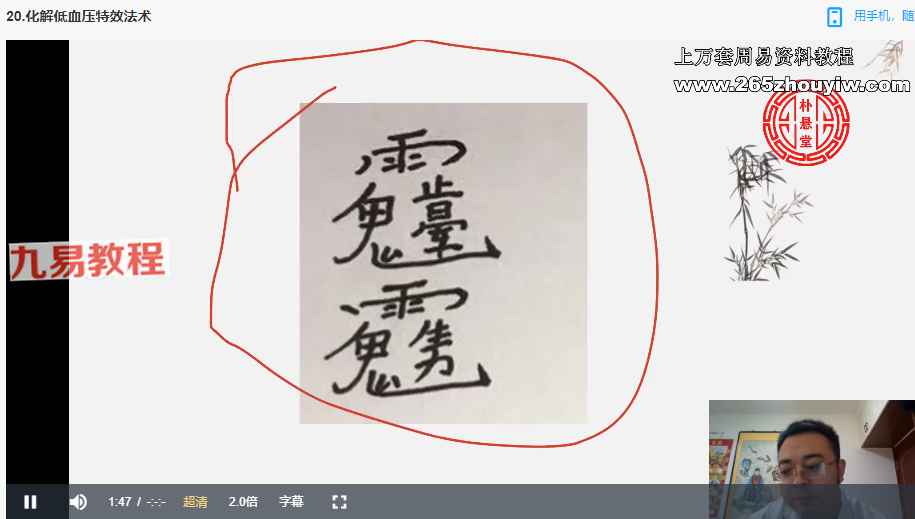 20.化解低血压特效法术
用手机，随
上万套周易资料教程
www.265zhouyiw.com
朴
悬
堂
九易教程
1:47 / -:-:-
超清
2.0倍
字幕